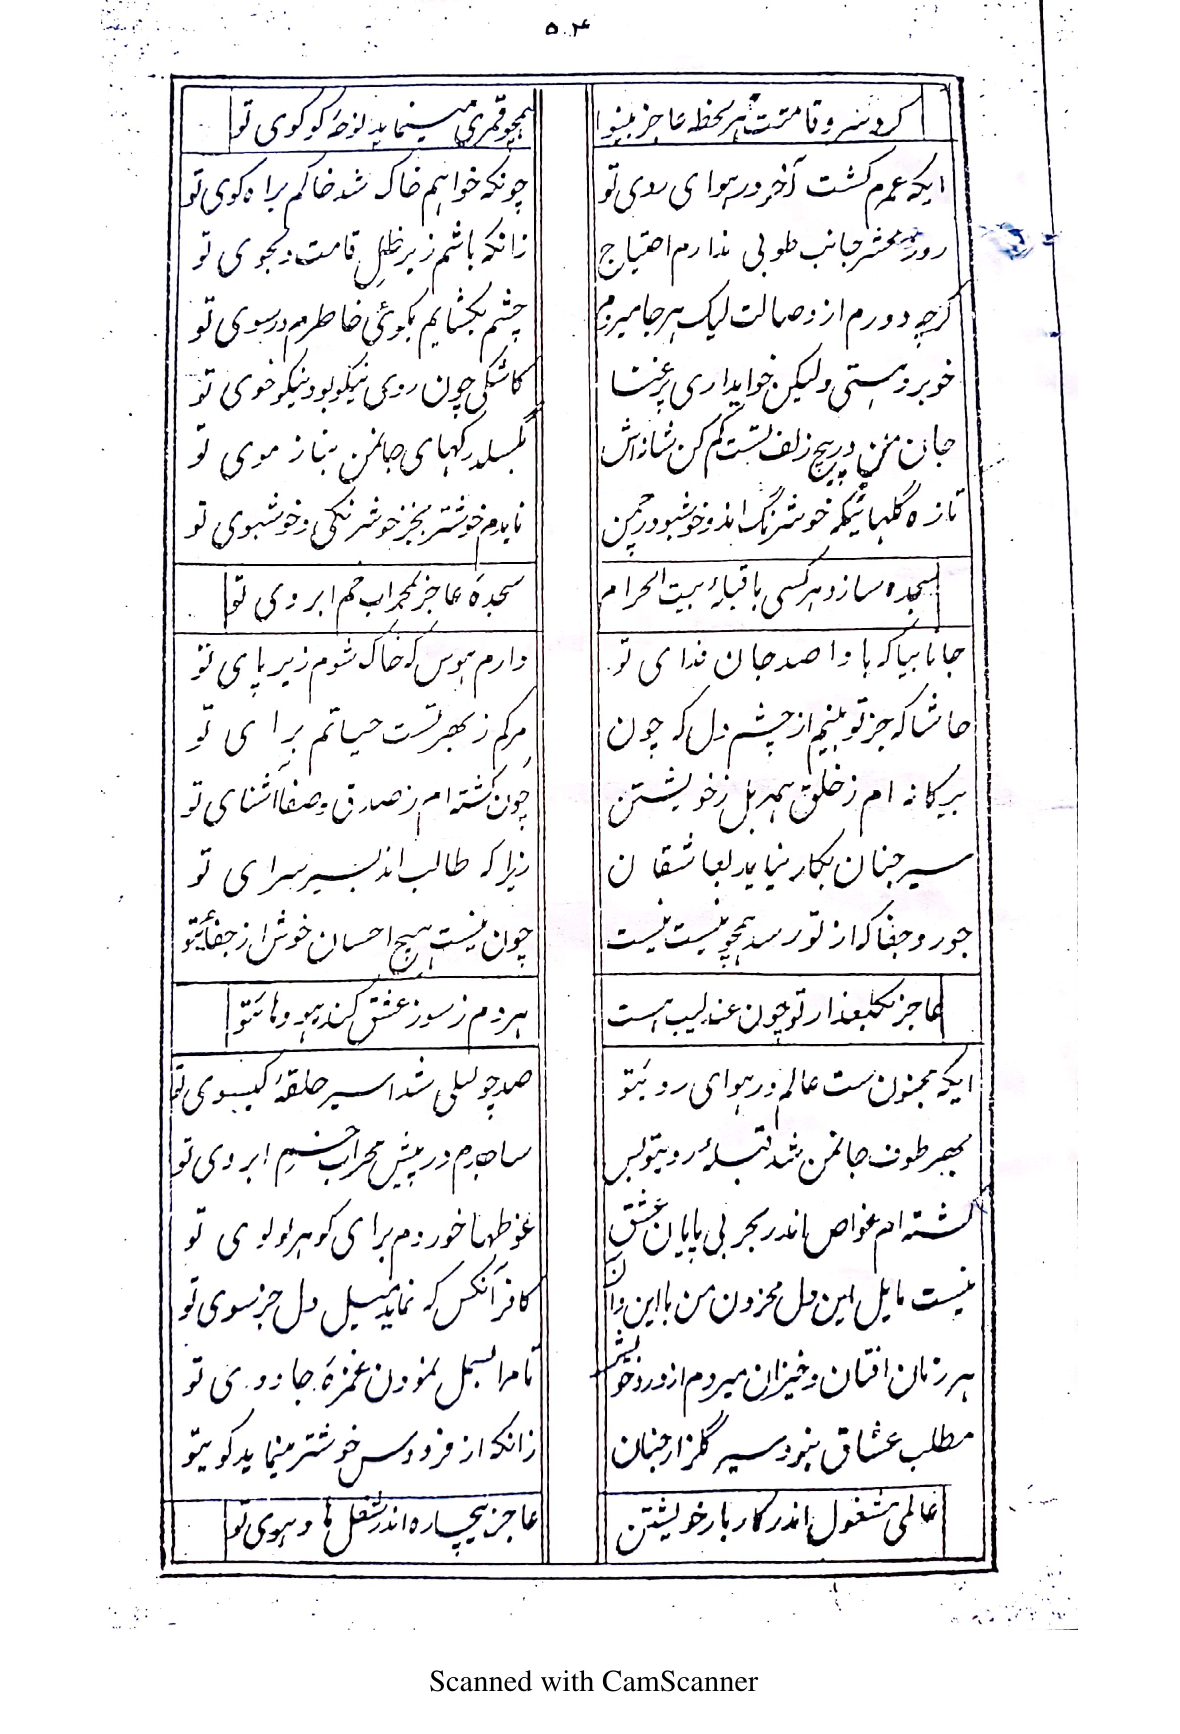 ۵۰۴
گرد سرو قامتت هر لحظه عاجز بینوا
همچو قمری مینماید نوحهٔ کوکوی تو
ایکه عمرم گشت آخر در هوای روی تو
چونکه خواهم خاک شد خاکم براه کوی تو
روز محشر جانب طوبی ندارم احتیاج
زانکه باشم زیر ظل قامت دلجوی تو
گرچه دورم از وصالت لیک هر جا میروم
چشم بگشایم بکوئی خاطرم در سوی تو
خوبرو هستی ولیکن خو بداری پر عنا
کاشکی چون روی نیکو بود نیکو خوی تو
جان من در پیچ زلف تست کم کن شانه‌اش
نگسلد رگهای جانمن بناز موی تو
تازه گلهائیکه خوشرنگ اند و خوشبو در چمن
نایدم خوشتر بجز خوشرنگی و خوشبوی تو
سجده سازد هر کسی با قبلهٔ بیت الحرام
سجدهٔ عاجز بمحراب خم ابروی تو
جانا بیا که بادا صد جان فدای تو
دارم هوس که خاک شوم زیر پای تو
حاشا که جز تو بینم از چشم دل که چون
مرگم ز بهر تست حیاتم برای تو
بیگانه ام ز خلق همه بل ز خویشتن
چون گشته ام ز صدق و صفا آشنای تو
سیر جنان بکار نیاید بعاشقان
زیرا که طالب اند بسیر سرای تو
جور و جفا که از تو رسد همچو نیست نیست
چون نیست هیچ احسان خوش از جفائیتو
عاجز بگلعذار تو چون عندلیب هست
هر دم ز سوز عشق کند هو و هائیتو
ایکه مجنون ست عالم در هوای رویتو
صد چو لیلی شد اسیر حلقهٔ گیسوی تو
بهر طوف جانمن شد قبلهٔ رویتو بس
ساجدم در پیش محراب خم ابروی تو
گشته ام غواص اندر بحر بی پایان عشق
غوطها خوردم برای گوهر لولوی تو
نیست مایل این دل محزون من با این و آن
کافر آنکس که نماید میل دل جز سوی تو
هر زمان افتان و خیزان میروم از خویش
تا مرا بسمل نمودن غمزهٔ جادوی تو
مطلب عشاق نبود سیر گلزار جنان
زانکه از فردوس خوشتر مینماید کویتو
عالمی مشغول اندر کار بار خویشتن
عاجز بیچاره اندر شغل ها و هوی تو
Scanned with CamScanner